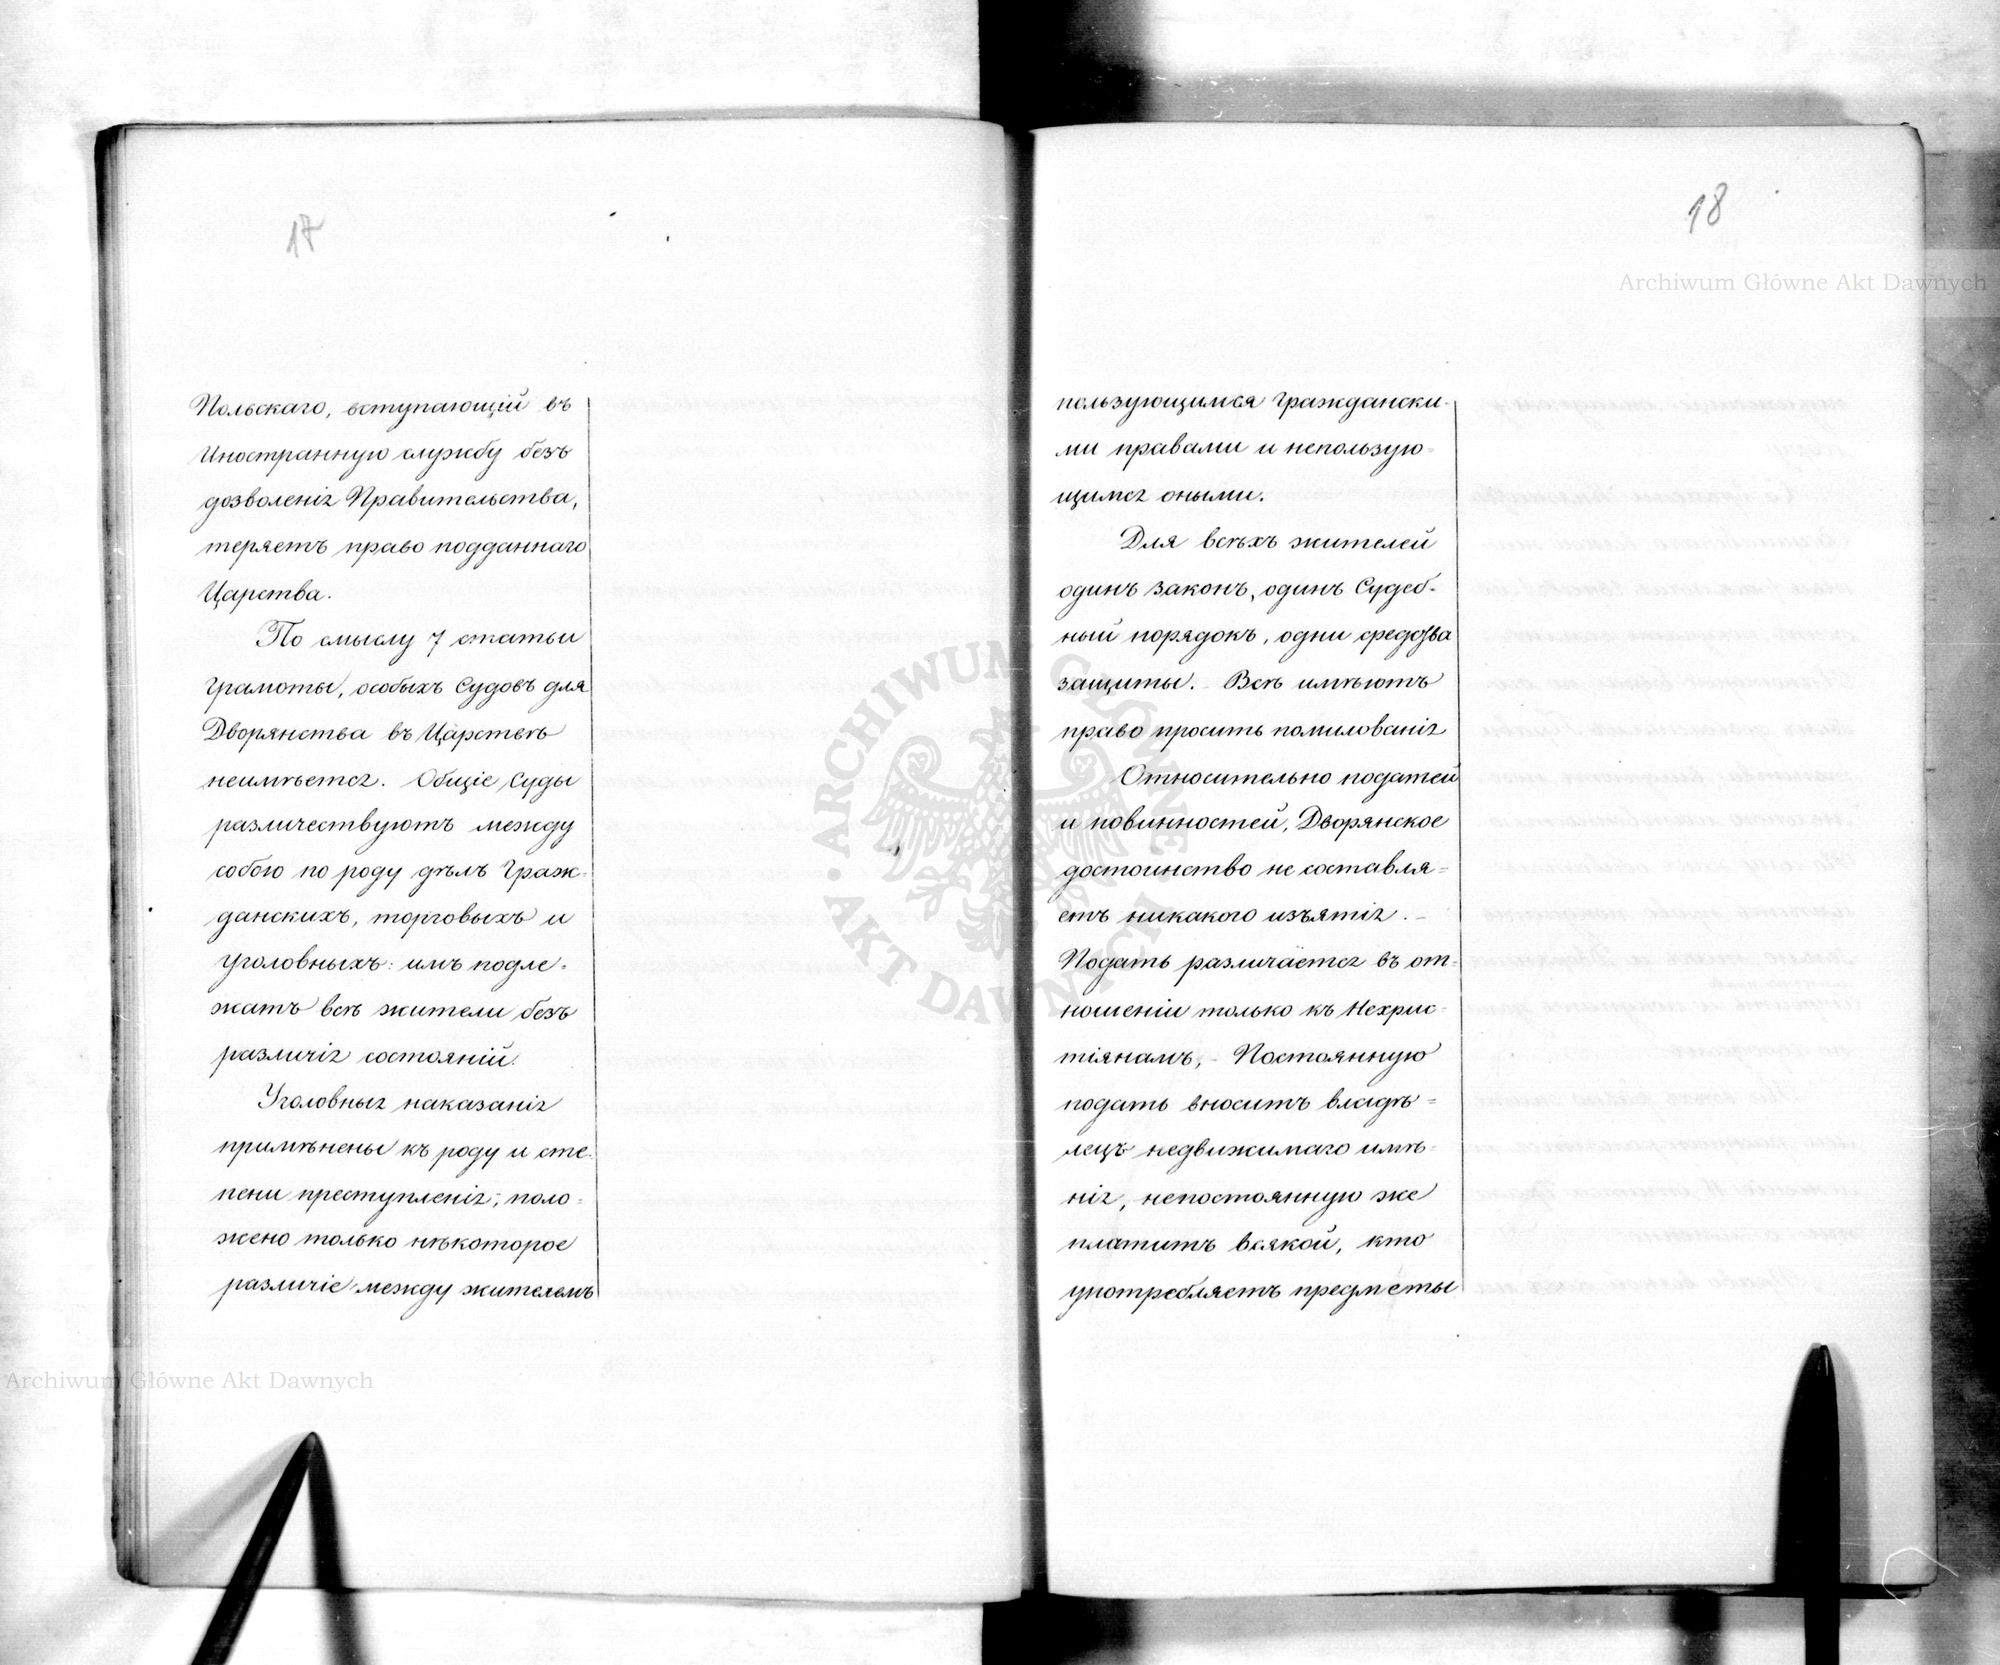 17
Польскаго, вступающій въ
Иностранную службу безъ
дозволенія Правительства,
теряетъ право подданнаго
Царства.
По смыслу 7 статьи
Грамоты, особыхъ Судовъ для
Дворянства въ Царствѣ
неимѣется. Общіе Суды
различествуютъ между
собою по роду дѣлъ Граж-
данскихъ, торговыхъ и
уголовныхъ: имъ подле-
жатъ всѣ жители безъ
различія состояній.
Уголовныя наказанія
примѣнены къ роду и сте-
пени преступленія; поло-
жено только нѣкоторое
различіе между жителемъ
18
пользующимся Граждански-
ми правами и непользую-
щимся оными.
Для всѣхъ жителей
одинъ законъ, одинъ Судеб-
ный порядокъ, одни средства
защиты. Всѣ имѣютъ
право просить помилованія
Относительно податей
и повинностей, Дворянское
достоинство не составля-
етъ никакого изъятія. -
Подать различается въ от-
ношеніи только къ Нехрис-
тіянамъ, - Постоянную
подать вноситъ владѣ-
лецъ недвижимаго имѣ-
нія, непостоянную же
платитъ всякой, кто
употребляетъ предметы
Archiwum Główne Akt Dawnych
Archiwum Główne Akt Dawnych
ARCHIWUM GŁÓWNE AKT DAWNYCH